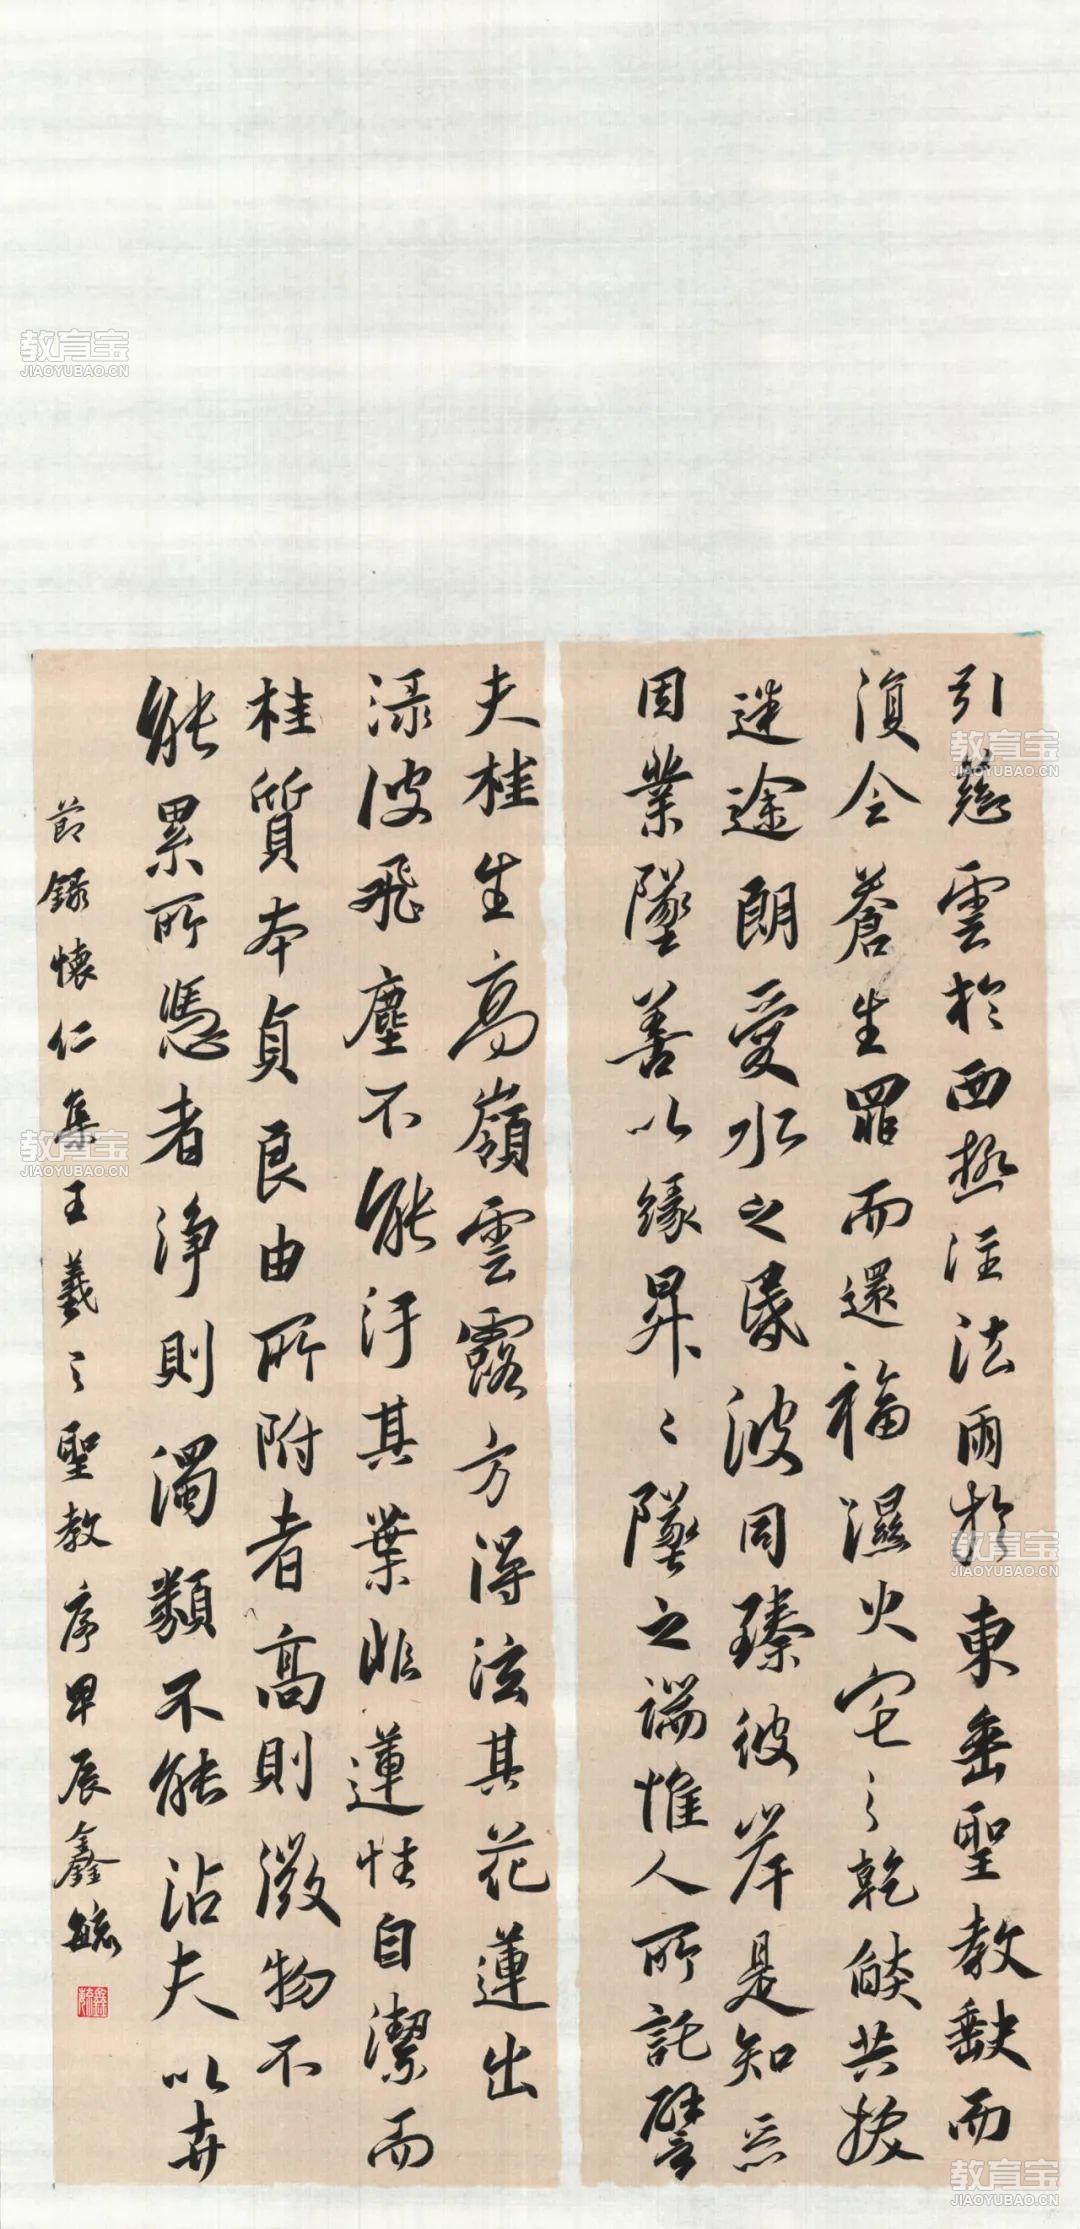 引慈雲於西極注法雨於東垂聖教缺而
復令蒼生罪而還福濕火宅之乾燄共拔
迷途朗愛水之昏波同臻彼岸是知惡
因業墜善以緣昇昇〻墜之端惟人所託譬
夫桂生高嶺雲露方得泫其花蓮出
淥波飛塵不能汙其葉非蓮性自潔而
桂質本貞良由所附者高則微物不
能累所憑者淨則濁類不能沾夫以卉
節錄懷仁集王羲之聖教序甲辰鑫毓
教育宝
JIAOYUBAO.CN
教育宝
JIAOYUBAO.CN
教育宝
JIAOYUBAO.CN
教育宝
JIAOYUBAO.CN
教育宝
JIAOYUBAO.CN